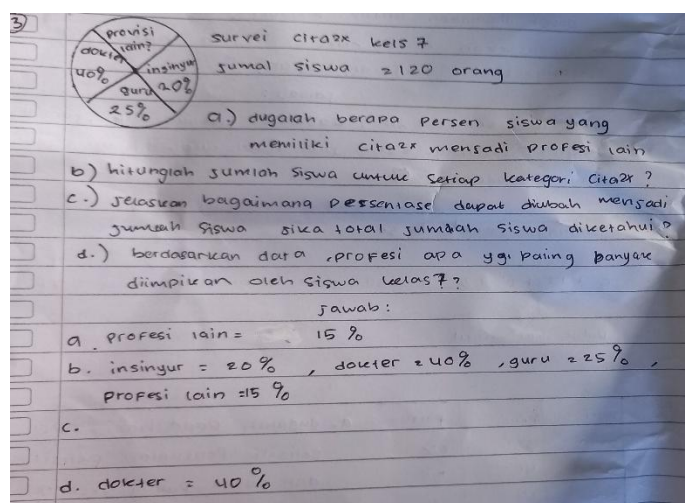 3)
profisi
lain?
dokter
40%
insinyur
20%
guru
25%
survei cita2x kels 7
jumal siswa = 120 orang
a.) dugalah berapa persen siswa yang
memiliki cita2x menjadi profesi lain
b) hitunglah jumlah siswa untuk setiap kategori cita2x?
c.) jelaskan bagaimana persentase dapat diubah menjadi
jumlah siswa jika total jumlah siswa diketahui?
d.) berdasarkan data, profesi apa yg. paling banyak
diimpikan oleh siswa kelas 7?
jawab:
a. profesi lain = 15%
b. insinyur = 20%, dokter = 40%, guru = 25%,
profesi lain = 15%
c.
d. dokter = 40%